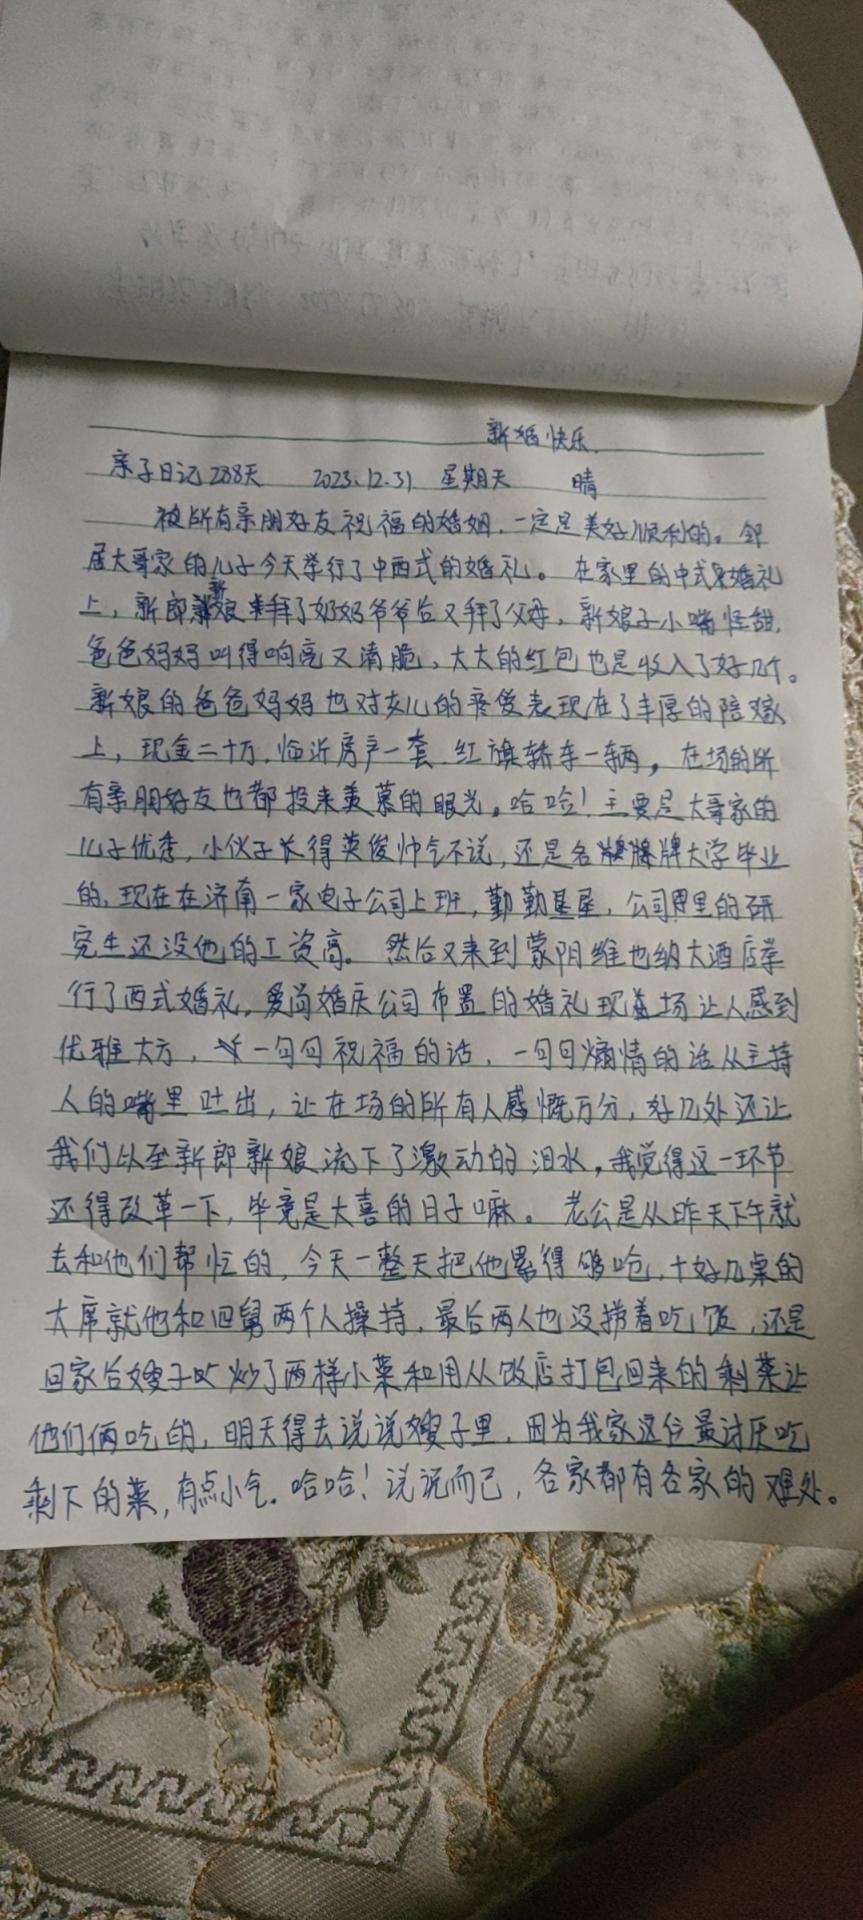 新婚快乐.
亲子日记288天 2023.12.31 星期天 晴
被所有亲朋好友祝福的婚姻,一定是美好顺利的。邻
居大哥家的儿子今天举行了中西式的婚礼。在家里的中式婚礼
上,新郎新娘拜了奶奶爷爷后又拜了父母,新娘子小嘴怪甜,
爸爸妈妈叫得响亮又清脆,大大的红包也是收入了好几个。
新娘的爸爸妈妈也对女儿的疼爱表现在了丰厚的陪嫁
上,现金二十万.临沂房产一套.红旗轿车一辆,在场的所
有亲朋好友也都投来羡慕的眼光。哈哈!主要是大哥家的
儿子优秀,小伙子长得英俊帅气不说,还是名牌大学毕业
的,现在在济南一家电子公司上班,勤勤恳恳,公司里的研
究生还没他的工资高。然后又来到蒙阴维也纳大酒店举
行了西式婚礼,爱尚婚庆公司布置的婚礼现场让人感到
优雅大方,一句句祝福的话,一句句煽情的话从主持
人的嘴里吐出,让在场的所有人感慨万分,好几处还让
我们以至新郎新娘流下了激动的泪水,我觉得这一环节
还得改革一下,毕竟是大喜的日子嘛。老公是从昨天下午就
去和他们帮忙的,今天一整天把他累得够呛,十好几桌的
大席就他和四舅两个人操持,最后两人也没捞着吃饭,还是
回家后嫂子炒了两样小菜和用从饭店打包回来的剩菜让
他们俩吃的,明天得去说说嫂子里,因为我家这位最讨厌吃
剩下的菜,有点小气.哈哈!说说而已,各家都有各家的难处。